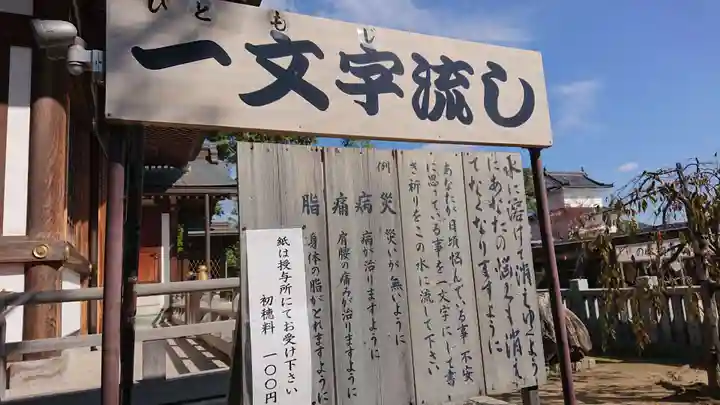 ひともじ
一文字流し
水に溶けて消えゆくように
にあなたの悩みも消え
てなくなりますように
あなたが日頃悩んでいる事、不安
に思っている事を一文字にして書
き祈りをこの水に流して下さい
例
災 災いが無いように
病 病が治りますように
痛 肩腰の痛みが治りますように
脂 身体の脂がとれますように
紙は授与所にてお受け下さい
初穂料 一〇〇円